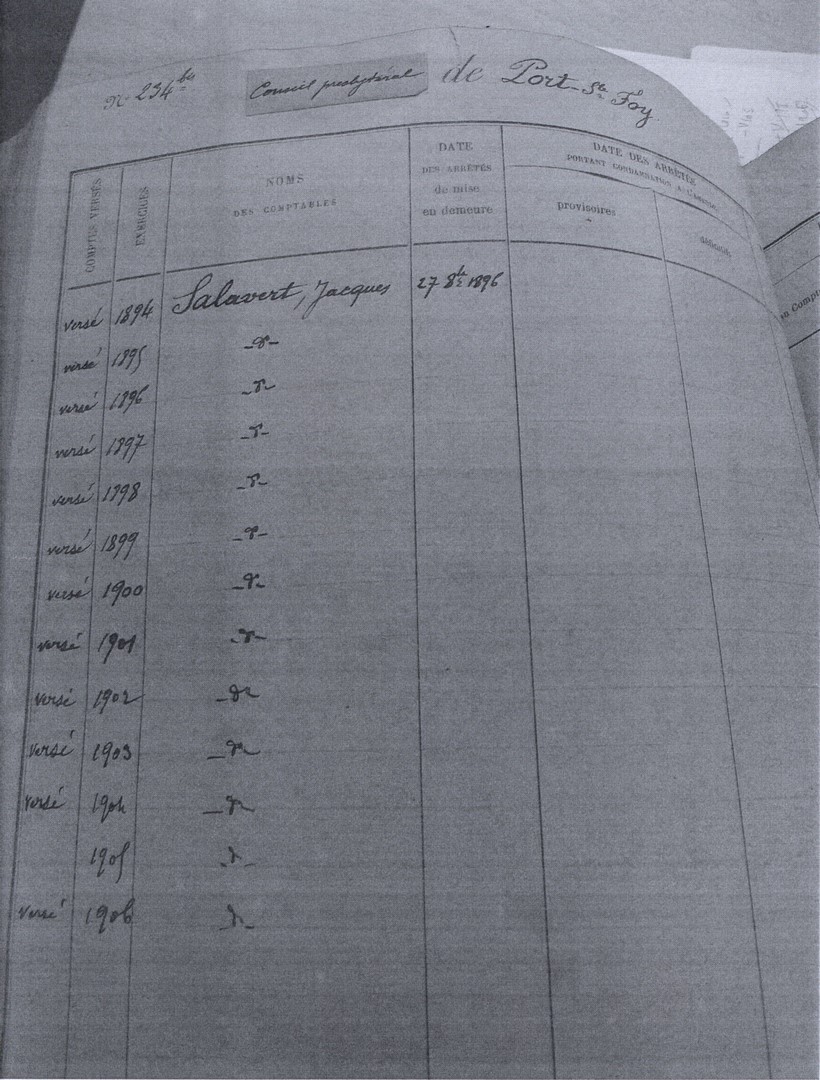 N° 234 bis Conseil presbytéral de Port-Ste Foy
COMPTES VERSÉS
EXERCICES
NOMS
DES COMPTABLES
DATE
DES ARRÊTÉS
de mise
en demeure
DATE DES ARRÊTÉS
PORTANT CONDAMNATION A L'AMENDE
provisoires
versé 1894 Salavert, Jacques 27 8bre 1896
versé 1895 -d°-
versé 1896 -d°-
versé 1897 -d°-
versé 1898 -d°-
versé 1899 -d°-
versé 1900 -d°-
versé 1901 -d°-
versé 1902 -d°-
versé 1903 -d°-
versé 1904 -d°-
1905 -d°-
versé 1906 -d°-
en Compt